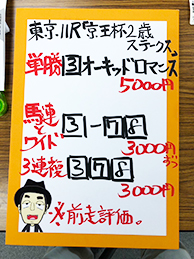 東京11R「京王杯2歳
ステークス」
単勝 3 オーキッドロマンス
5000円
馬連
と
ワイド
3-7 8
3000円
ずつ
3連複 3 7 8
3000円
※前走評価。